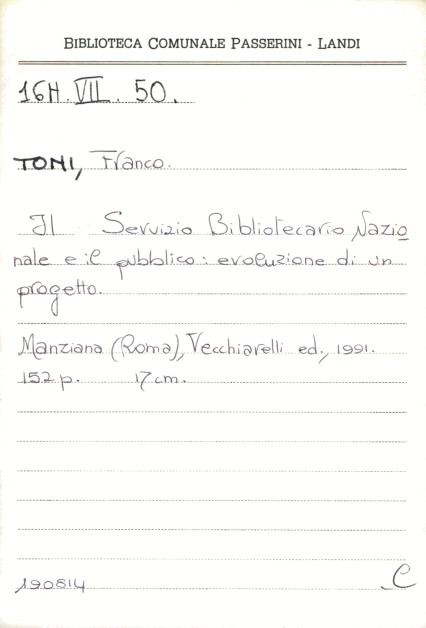 BIBLIOTECA COMUNALE PASSERINI - LANDI
16H. VII. 50.
TONI, Franco.
Il Servizio Bibliotecario Nazio
nale e il pubblico: evoluzione di un
progetto.
Manziana (Roma), Vecchiarelli ed., 1991.
152 p. 17 cm.
190814
C